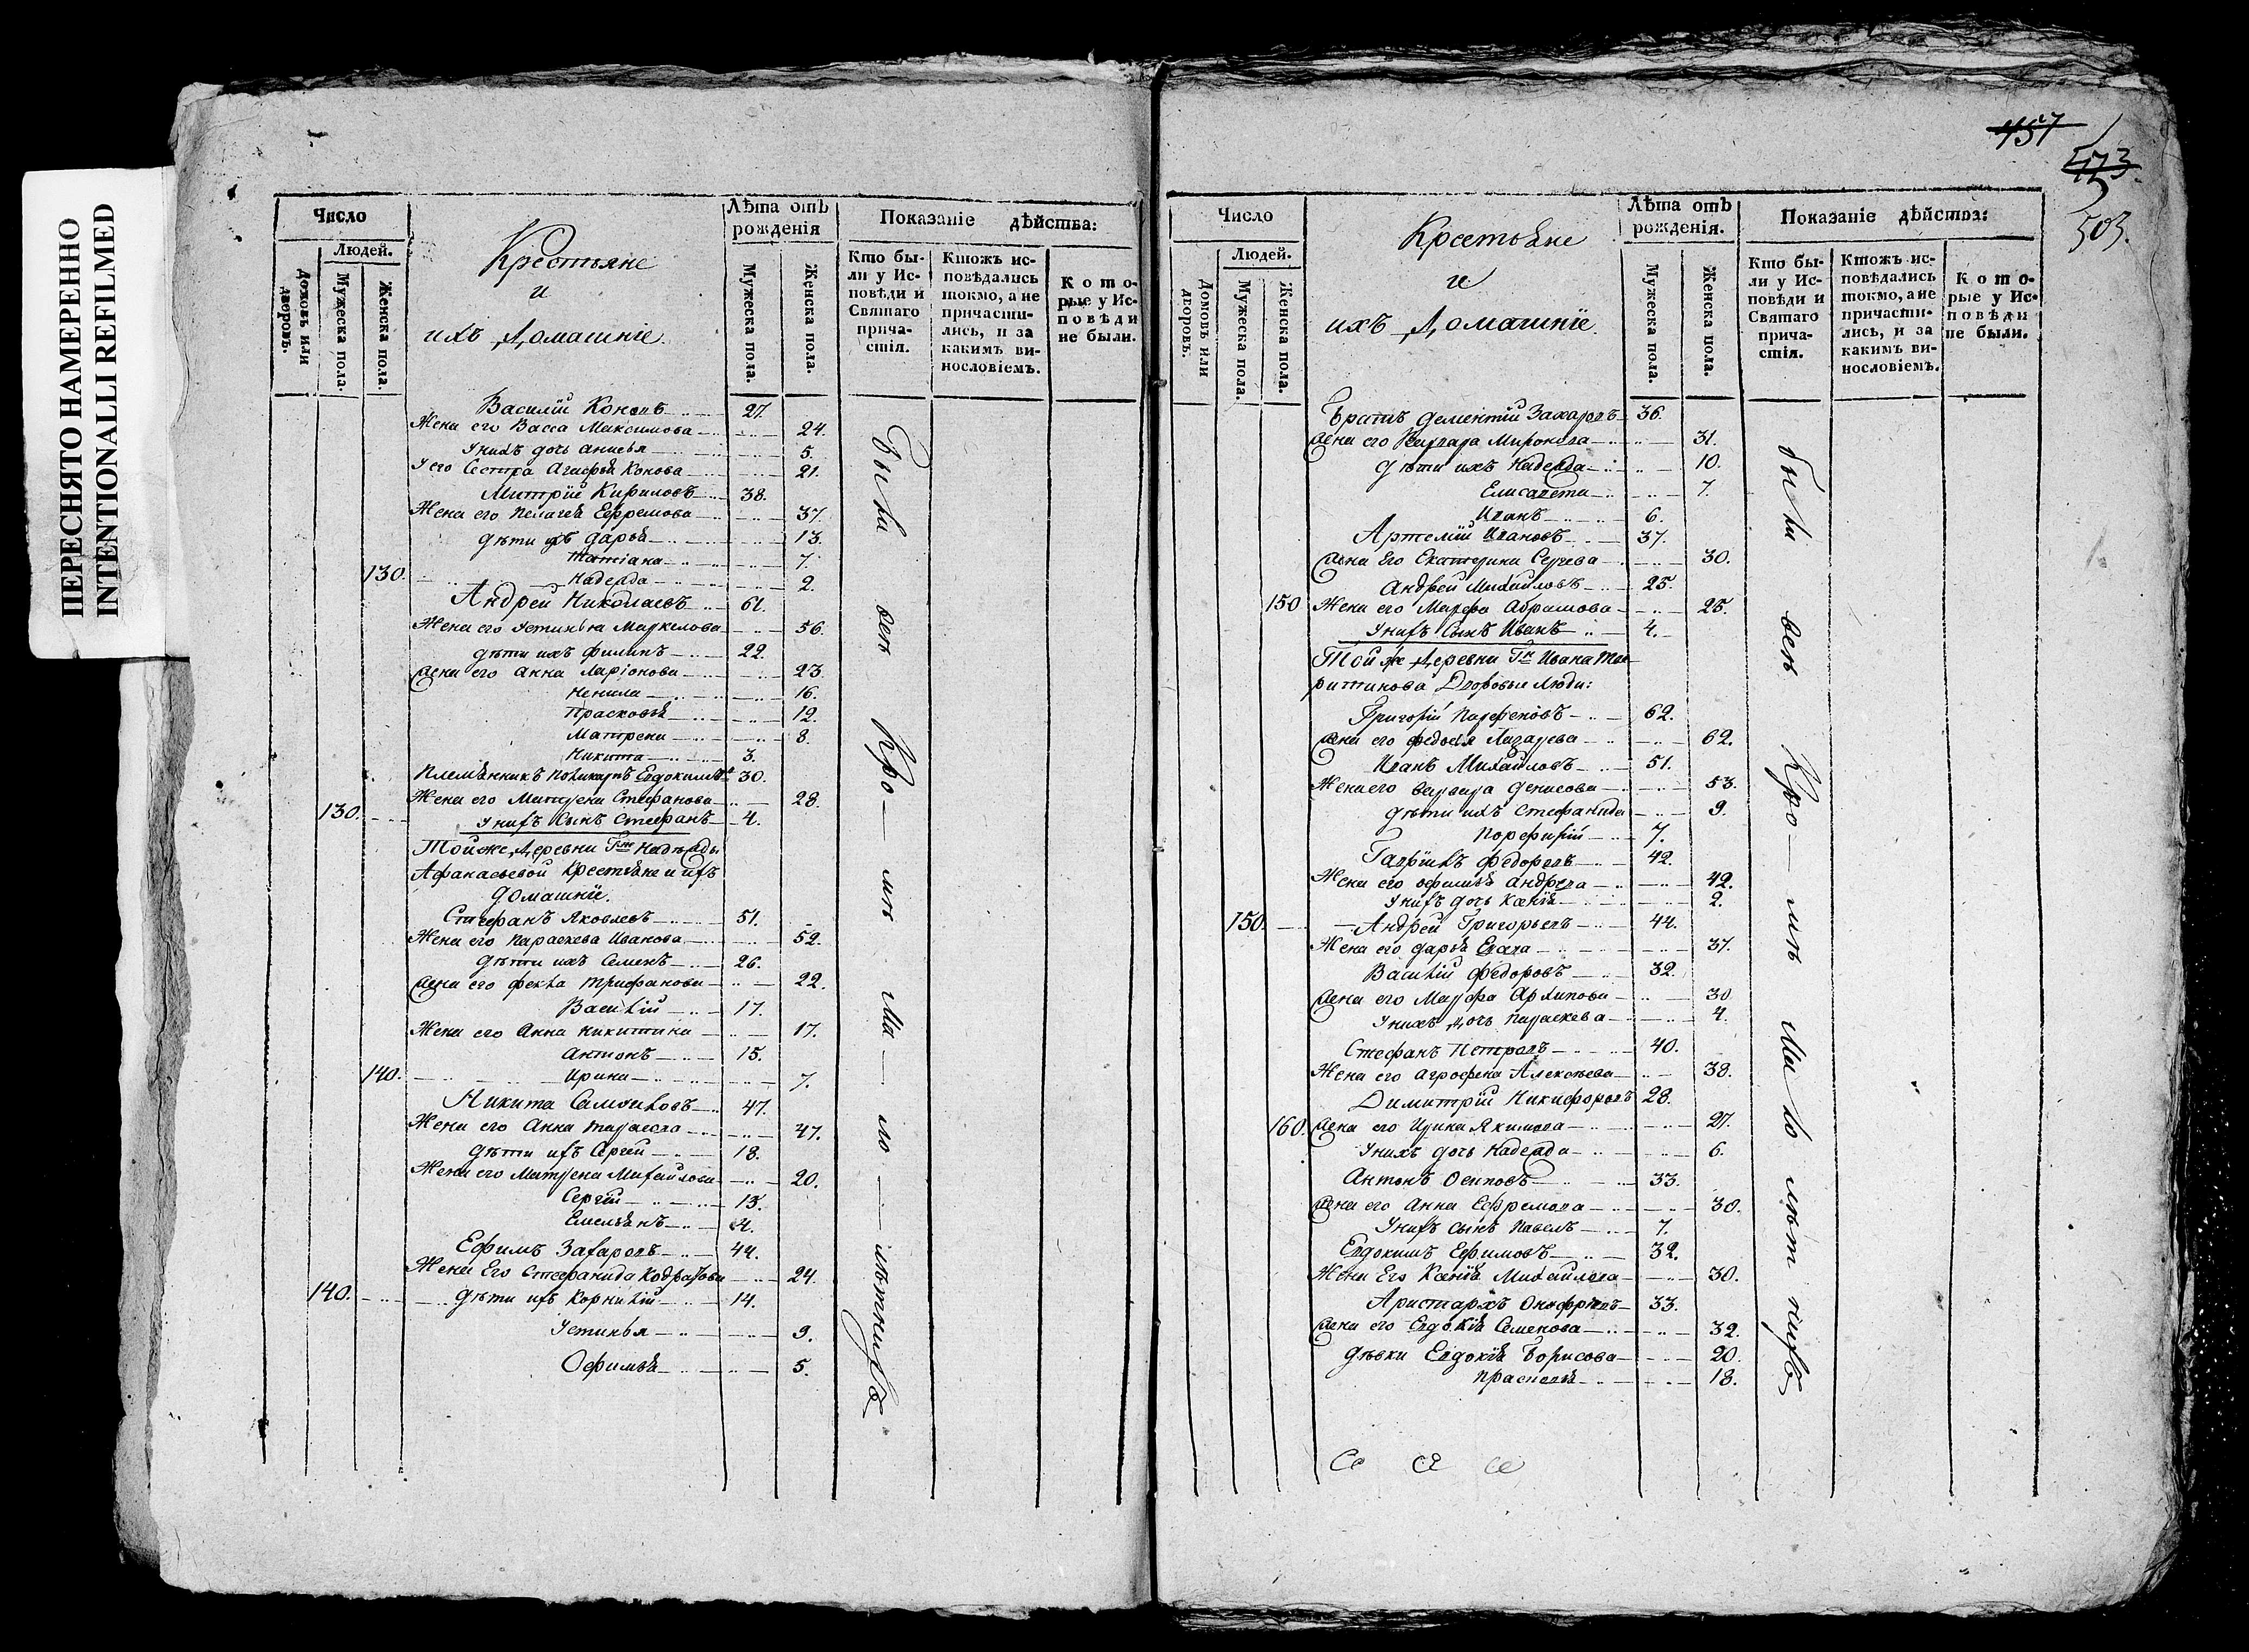 ПЕРЕСНЯТО НАМЕРЕННО
INTENTIONALLI REFILMED
Число
Людей.
Домовъ или дворовъ.
Мужеска пола.
Женска пола.
Крестьяне
и
ихъ Домашніе.
Лѣта отъ рожденія
Мужеска пола.
Женска пола.
Показаніе дѣйства:
Кто были у Исповѣди и Святаго причастія.
Ктожъ исповѣдались токмо, а не причастились, и за какимъ винословіемъ.
Которые у Исповѣди не были.
Василій Коновъ 27.
Жена его Васса Максимова 24.
Унихъ дочь Анисья 5.
У его Сестра Агафья Конова 21.
Митрій Кириловъ 38.
Жена его Пелагея Ефремова 37.
дѣти ихъ Дарья 13.
Татіана 7.
130. Надежда 2.
Андрей Николаевъ 61.
Жена его Устинья Маркелова 56.
дѣти ихъ Филипъ 22.
Жена его Анна Ларіонова 23.
Ненила 16.
Прасковья 12.
Матрена 8.
Никита 3.
Племянникъ Поликарпъ Евдокимовъ 30.
Жена его Матрена Стефанова 28.
130. Унихъ Сынъ Стефанъ 4.
Тойже Деревни Гжи Надежды
Афанасьевой Крестьяне и ихъ
домашніе.
Стефанъ Яковлевъ 51.
Жена его Параскева Иванова 52.
дѣти ихъ Семенъ 26.
Жена его Фекла Трифанова 22.
Василій 17.
Жена его Анна Никитина 17.
Антонъ 15.
140. Ирина 7.
Никита Самойловъ 47.
Жена его Анна Тарасова 47.
дѣти ихъ Сергій 18.
Жена его Матрена Михайлова 20.
Сергій 13.
Емельянъ 4.
Ефимъ Захаровъ 44.
Жена Его Стефанида Кодратова 24.
140. дѣти ихъ Корнилій 14.
Устинья 9.
Офимья 5.
Были все Кро-мѣ ма-ло-лѣтнихъ
457
503.
Число
Людей.
Домовъ или дворовъ.
Мужеска пола.
Женска пола.
Крестьяне
и
ихъ Домашніе.
Лѣта отъ рожденія.
Мужеска пола.
Женска пола.
Показаніе дѣйства:
Кто были у Исповѣди и Святаго причастія.
Ктожъ исповѣдались токмо, а не причастились, и за какимъ винословіемъ.
Которые у Исповѣди не были.
Братъ Дементій Захаровъ 36.
Жена его Варвара Миронова 31.
дѣти ихъ Надежда 10.
Елисавета 7.
Иванъ 6.
Артемій Ивановъ 37.
Жена Его Екатерина Сергева 30.
Андрей Михайловъ 25.
150 Жена его Марфа Абрамова 25.
Унихъ Сынъ Иванъ 4.
Той же Деревни Гн Ивана
Дворовые Люди:
Григорій Парфеновъ 62.
Жена его Федосья Лазарева 62.
Иванъ Михайловъ 51.
Жена его Варвара Денисова 53.
дѣти ихъ Стефанида 9.
Порфирій 7.
Гаврійлъ Федоровъ 42.
Жена его Офимья Андреева 42.
Унихъ дочь Ксенія 2.
150. Андрей Григорьевъ 44.
Жена его Дарья 37.
Василій Федоровъ 32.
Жена его Марфа Архипова 30
Унихъ дочь Параскева 4.
Стефанъ Петровъ 40.
Жена его Агрофена Алексеева 38.
Димитрій Никифоровъ 28.
160. Жена его Ирина Якимова 27.
Унихъ дочь Надежда 6.
Антонъ Осиповъ 33.
Жена его Анна Ефремова 30.
Унихъ сынъ Павелъ 7.
Евдокимъ Ефимовъ 32.
Жена Его Ксенія Михайлова 30.
Аристархъ Онофріевъ 33.
Жена его Евдокія Семенова 32.
дѣвки Евдокія Борисова 20.
Прасковья 18.
Были все Кро-мѣ мало лѣтнихъ